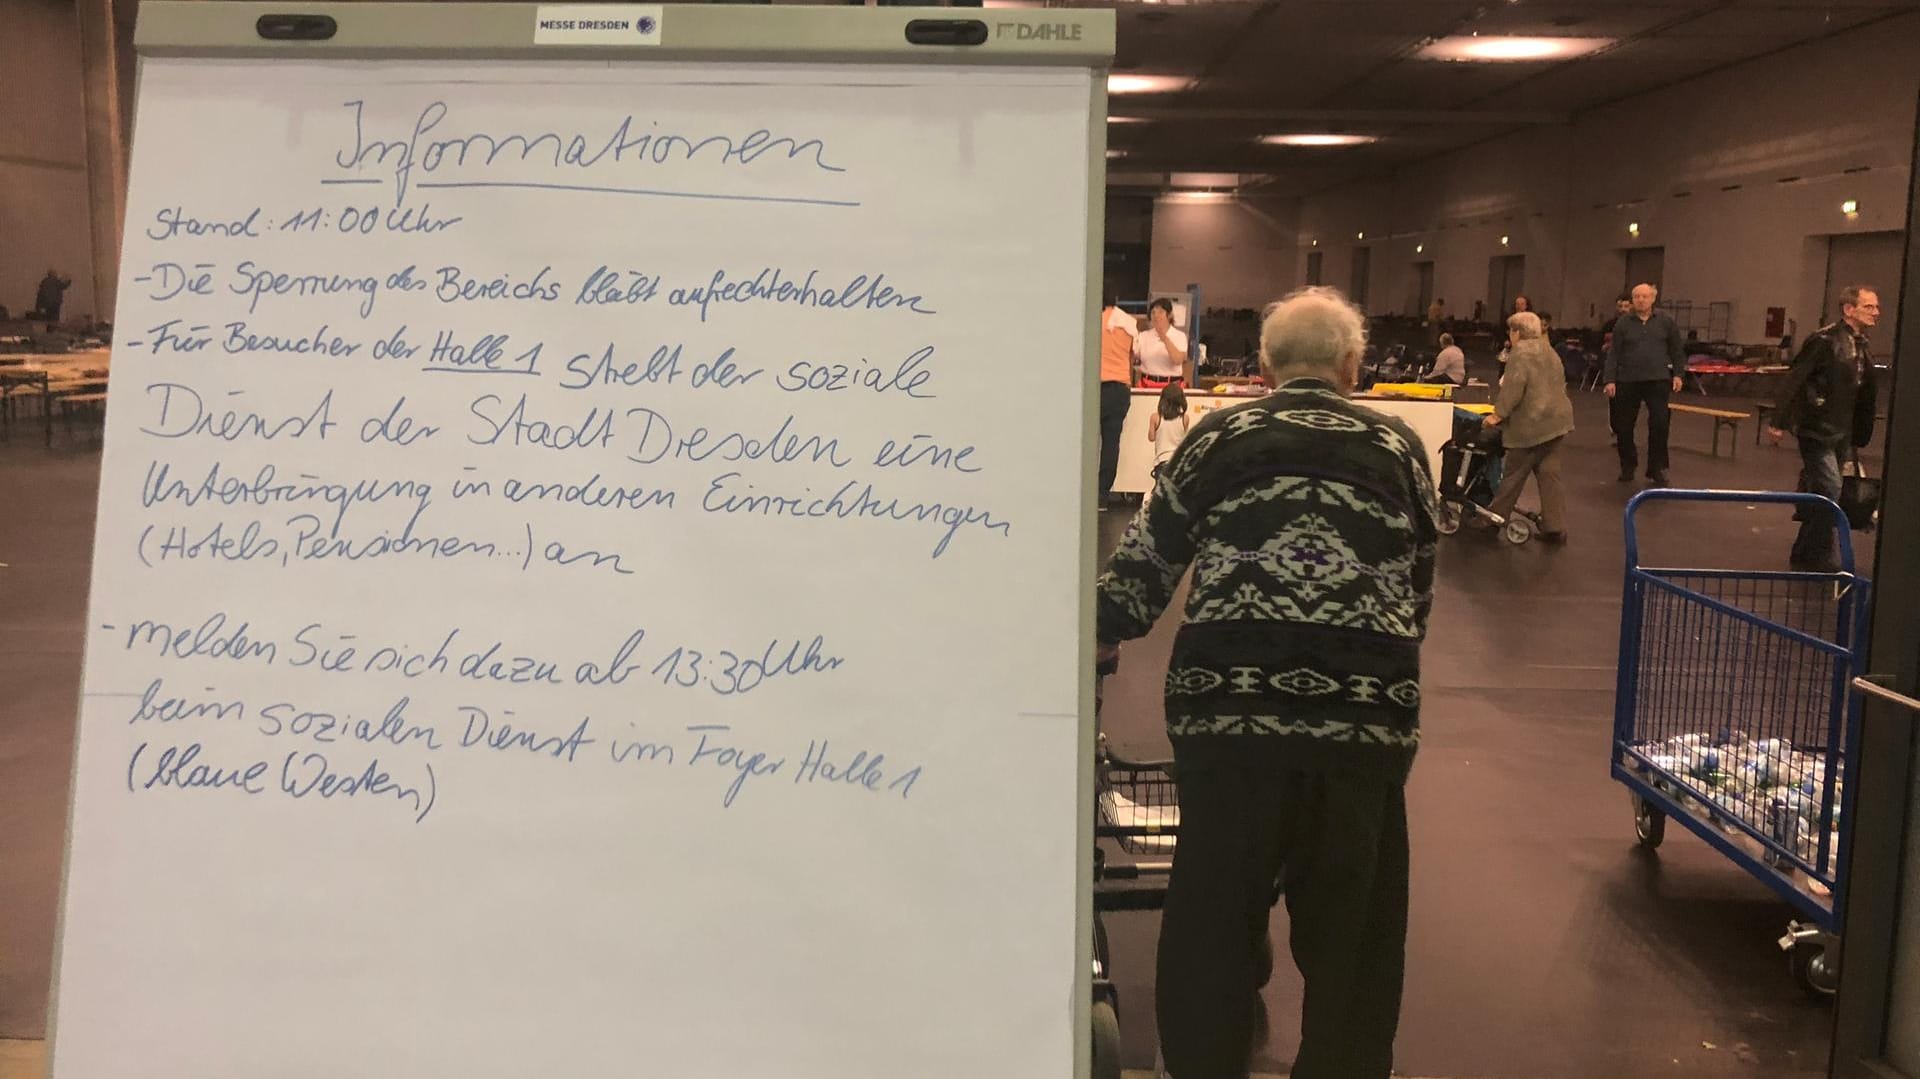 MESSE DRESDEN
DAHLE
Informationen
Stand: 11:00 Uhr
- Die Sperrung des Bereichs bleibt aufrechterhalten
- Für Besucher der Halle 1 strebt der soziale
Dienst der Stadt Dresden eine
Unterbringung in anderen Einrichtungen
(Hotels, Pensionen...) an
- melden Sie sich dazu ab 13:30 Uhr
beim sozialen Dienst im Foyer Halle 1
(blaue Westen)